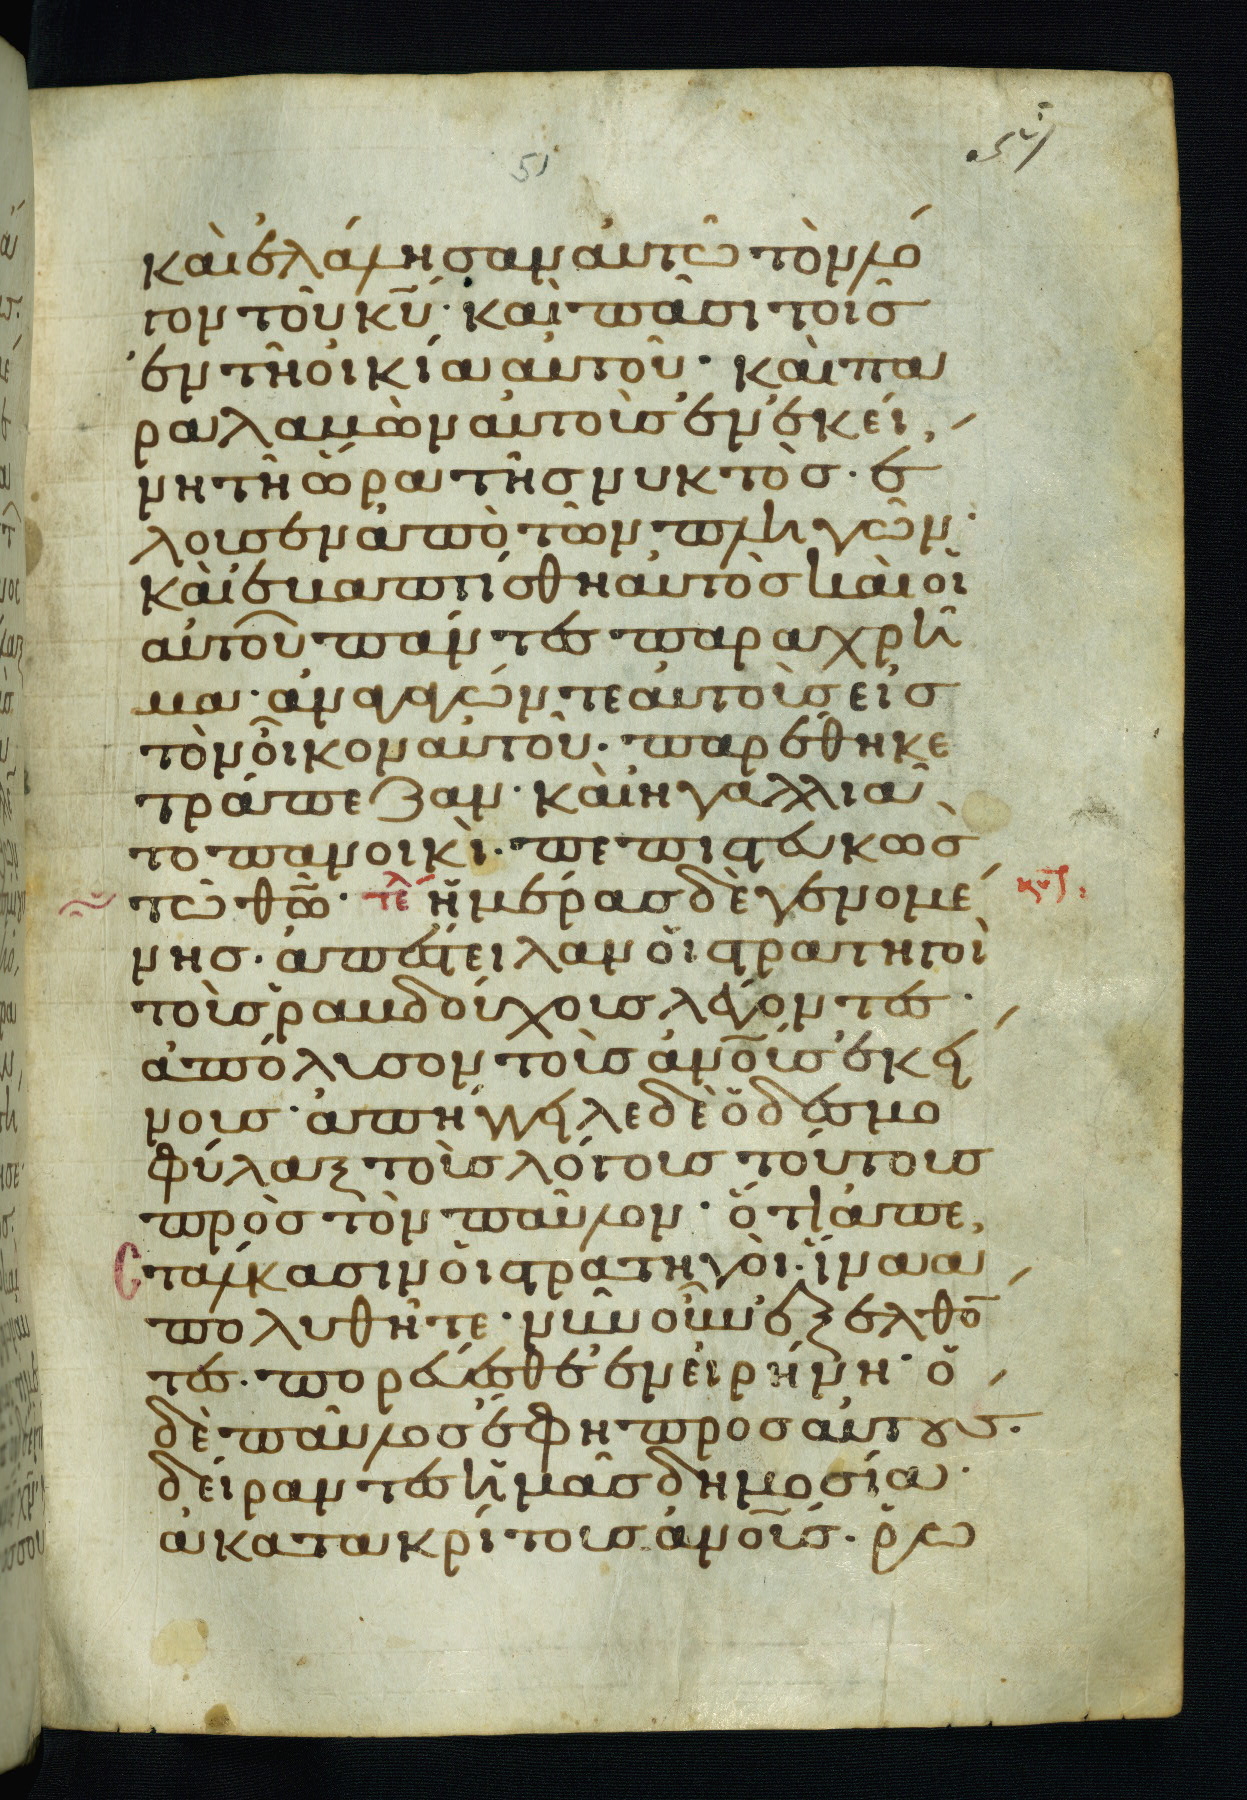 51
καὶ ἐλάλησαν αὐτῶ τὸν λό
γον τοῦ κυ̅· καὶ πᾶσι τοῖς
ἐν τῆ οἰκία αὐτοῦ· καὶ πα
ραλαβὼν αὐτοὺς ἐν ἐκεί
νη τῆ ὥρα τῆς νυκτὸς. ἔ
λουσεν ἀπὸ τῶν πληγῶν·
καὶ ἐβαπτίσθη αὐτὸς καὶ οἱ
αὐτοῦ πάντες παραχρῆ
μα· ἀναγαγών τε αὐτοὺς εἰς
τὸν οἶκον αὐτοῦ· παρέθηκε
τράπεζαν· καὶ ἠγαλλιᾶ
το πανοικὶ· πεπιστευκὼς
τῶ θω̅· τελ ἡμέρας δὲ γενομέ
νης· ἀπέστειλαν οἱ στρατηγοὶ
τοὺς ῥαβδούχους λέγοντες·
ἀπόλυσον τοὺς ἀνο̅υς ἐκεί
νους· ἀπήγγειλε δὲ ὁ δεσμο
φύλαξ τοὺς λόγους τούτους
πρὸς τὸν παῦλον· ὅτι ἀπε
στάλκασιν οἱ στρατηγοὶ· ἵνα ἀ
πολυθῆτε· νῦν οὖν ἐξελθό
τες· πορεύεσθε ἐν εἰρήνη· ὁ
δὲ παῦλος ἔφη προς αὐτούς·
δείραντες ἡμᾶς δημοσία·
ἀκατακρίτους ἀνο̅υς· ῥω